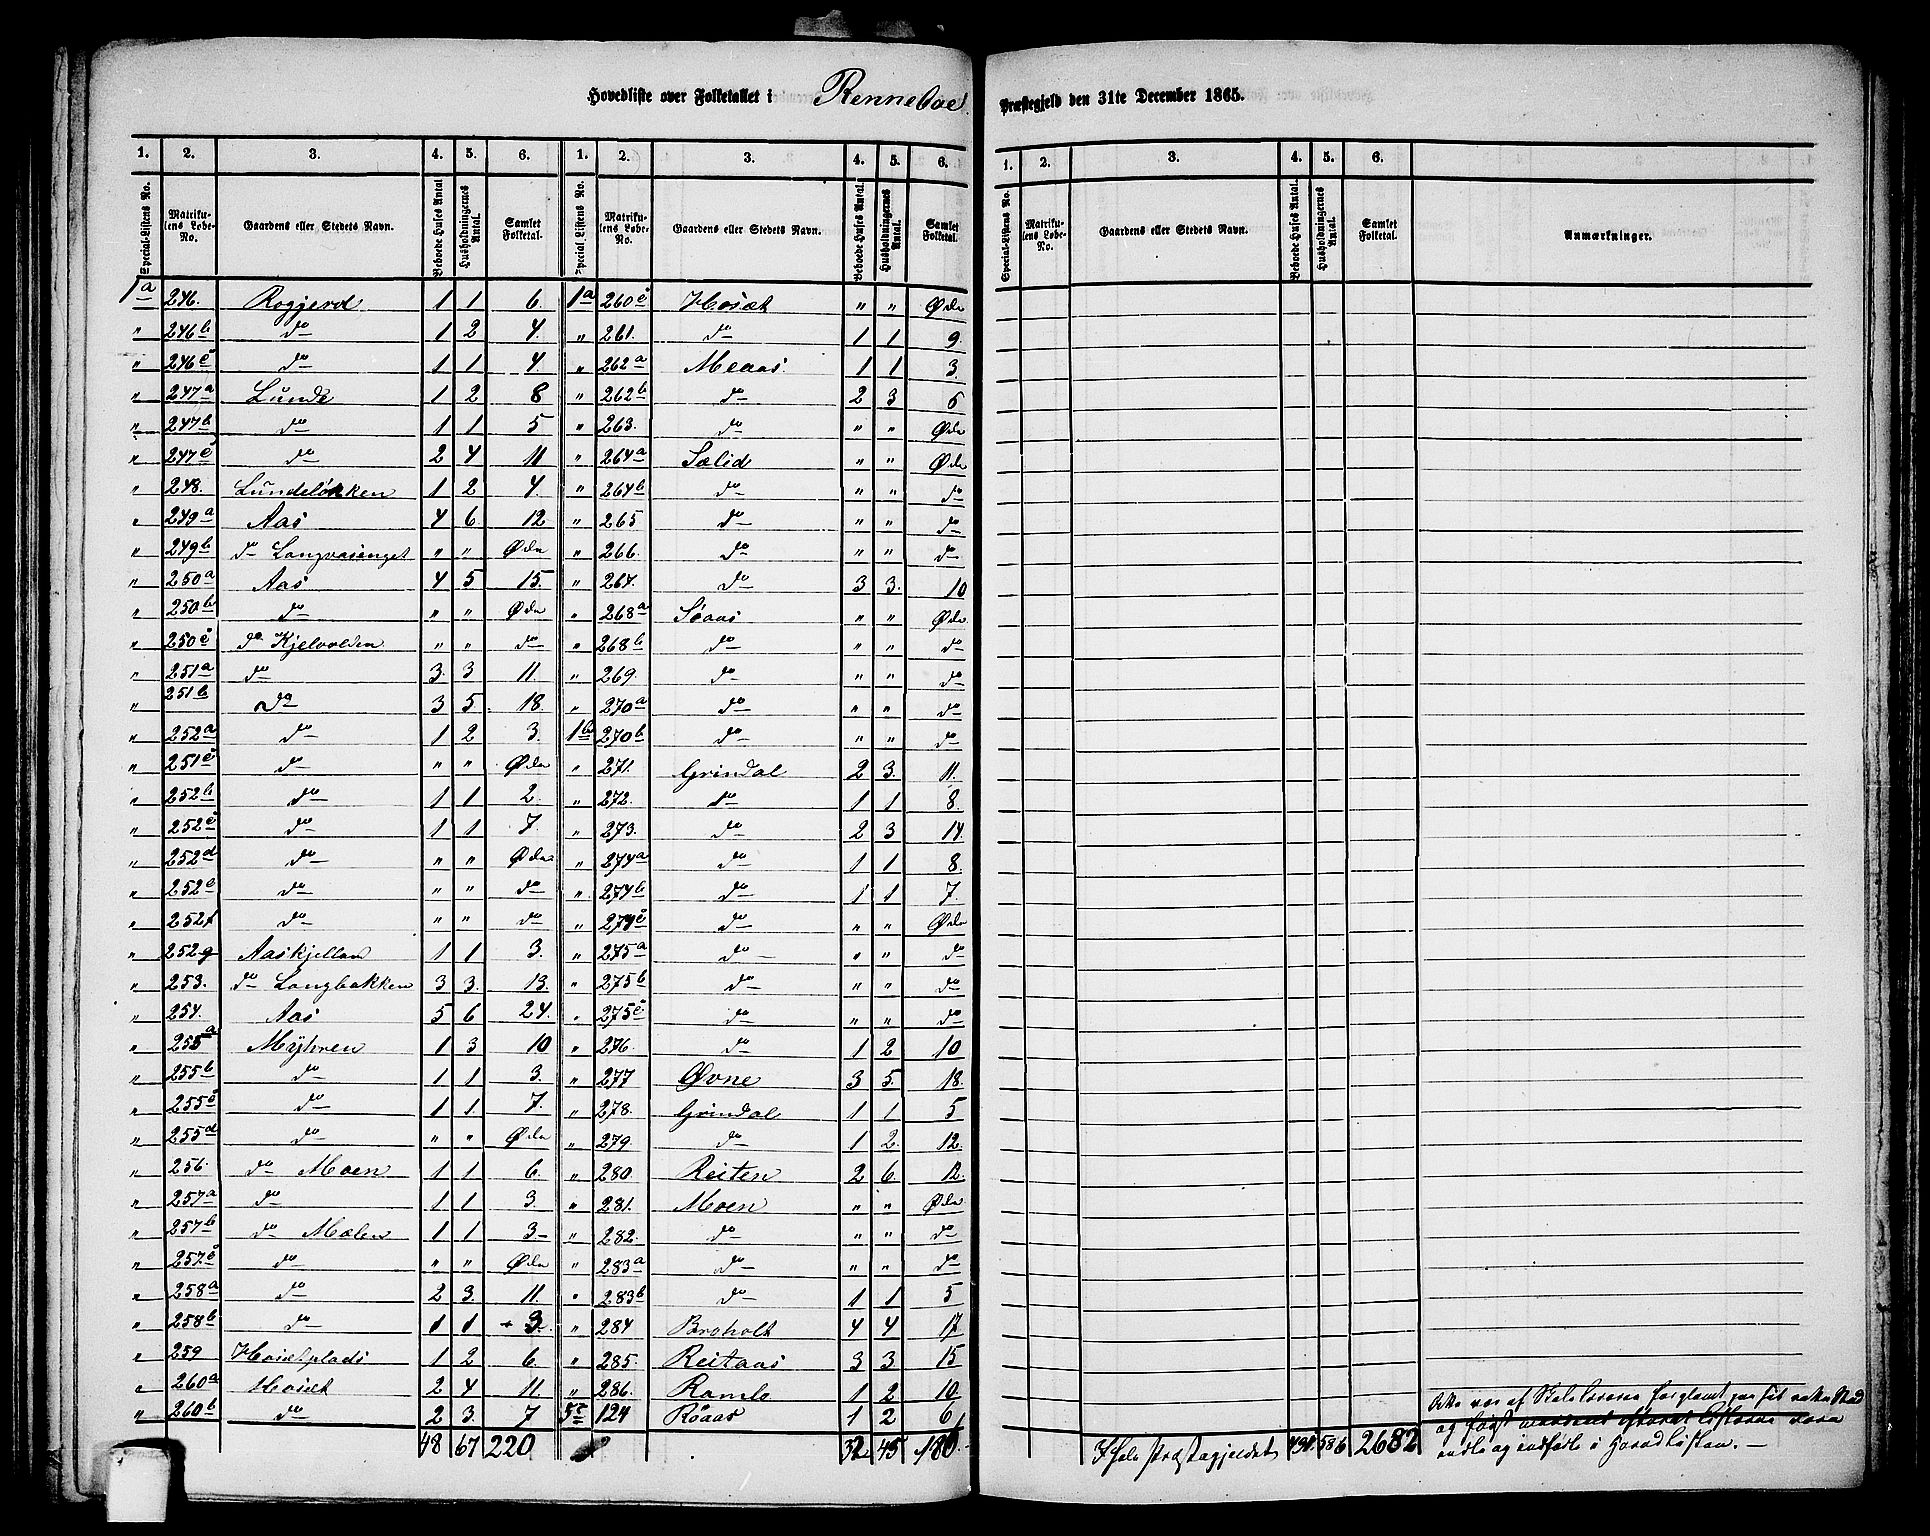 Hovedliste over Folketallet i Renneboe Præstegjeld den 31te December 1865.
1. 2. 3. 4. 5. 6. 1. 2. 3. 4. 5. 6. 1. 2. 3. 4. 5. 6.
Special-Listens No. Matrikulens Løbe-No. Gaardens eller Stedets Navn. Beboede Huses Antal Husholdningernes Antal. Samlet Folketal. Special Listens No. Matrikulens Løbe-No. Gaardens eller Stedets Navn. Beboede Huses Antal. Husholdningernes Antal. Samlet Folketal. Special-Listens No. Matrikulens Løbe-No. Gaardens eller Stedets Navn. Beboede Huses Antal. Husholdningernes Antal. Samlet Folketal Anmærkninger.
1a 246. Roggjerd 1 1 6. 1a 260c Hosæt " " Øde
" 246b do 1 2 4. " 261. do 1 1 9.
" 246c do 1 1 4 " 262a Meaas 1 1 3.
" 247a Lunde 1 2 8 " 262b do 2 3 6
" 247b do 1 1 5 " 263. do " " Øde
" 247c do 2 4 11 " 264a Sælid " " Øde
" 248. Lundeløkken 1 2 4. " 264b do " " do
" 249a Aas 4 6 12. " 265 do " " do
" 249b do Langvasenget " " Øde " 266. do " " do
" 250a Aas 4 5 15. " 267. do 3 3. 10
" 250b do " " Øde " 268a Søaas " " Øde
" 250c do Kjelvolden " " do " 268b do " " do
" 251a do 3. 3 11. " 269. do " " do
" 251b do 3 5. 18. " 270a do " " do
" 252a do 1 2 3. 1b 270b do " " do
" 251c do " " Øde " 271. Grindal 2 3. 11.
" 252b do 1 1 2. " 272. do 1 1 8.
" 252c do 1 1 7. " 273. do 2 3 14.
" 252d do " " Øde " 274a do 1 1 8.
" 252e do " " do " 274b do 1 1 7.
" 252f do " " do " 274c do " " Øde
" 252g Aaskjellan 1 1 3. " 275a do " " do
" 253. do Langbakken 3 3. 13. " 275b do " " do
" 254. Aas 5 6 24. " 275c do " " do
" 255a Myhren 1 3 10 " 276. do 1 2 10
" 255b do 1 1 3. " 277 Øvne 3 5. 18.
" 255c do 1 1. 7. " 278. Grindal 1 1 5
" 255d do " " Øde " 279. do 1 2. 12.
" 256. do Moen 1 1 6. " 280. Reiten 2 6. 12.
" 257a do 1 1 3. " 281. Moen " " Øde
" 257b do Mælen 1 1 3- " 282. do " " do
" 257c do " " Øde " 283a do " " do
" 258a do 2 3. 11. " 283b do 1 1 5
" 258b do 1 1 3. " 284 Broholt 4 4 17
" 259 Hosætplads 1 2 6. " 285. Reitaas 3 3 15
" 260a Hosæt 2 4 11. " 286. Ramlo 1 2 10
" 260b do 2 3. 7 5c 124 Røaas 1 2 6
48 67 220 32 45 186. I hele Præstegjeldet 431 586 2682